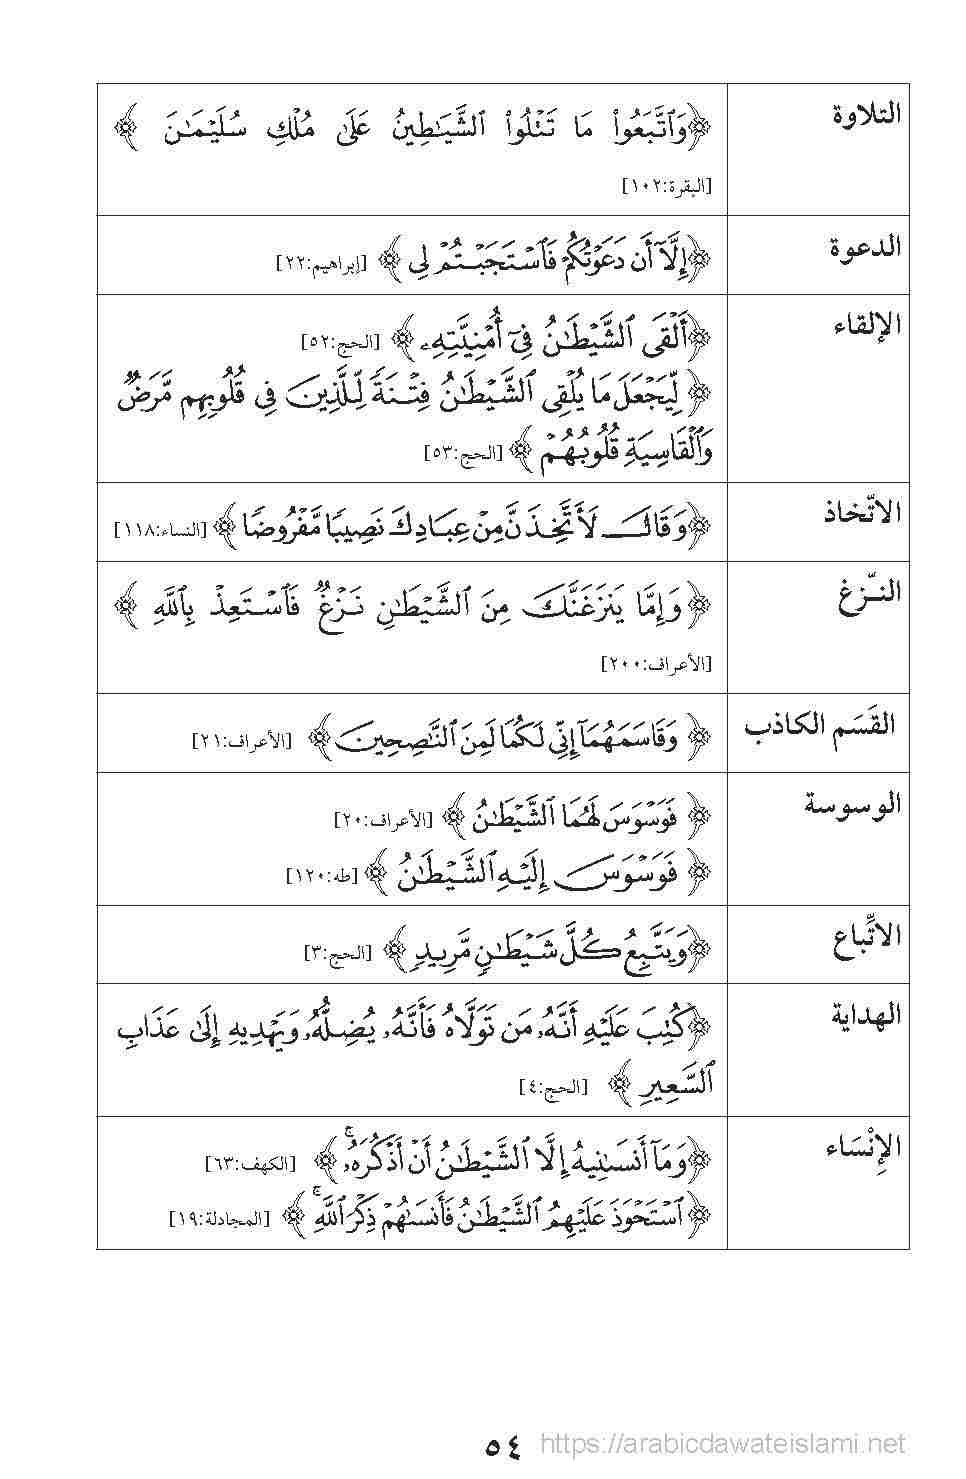 التلاوة
﴿وَٱتَّبَعُوا۟ مَا تَتْلُوا۟ ٱلشَّيَـٰطِينُ عَلَىٰ مُلْكِ سُلَيْمَـٰنَ﴾
[البقرة:١٠٢]
الدعوة
﴿إِلَّآ أَن دَعَوْتُكُمْ فَٱسْتَجَبْتُمْ لِى﴾ [إبراهيم:٢٢]
الإلقاء
﴿أَلْقَى ٱلشَّيْطَـٰنُ فِىٓ أُمْنِيَّتِهِۦ﴾ [الحج:٥٢]
﴿لِّيَجْعَلَ مَا يُلْقِى ٱلشَّيْطَـٰنُ فِتْنَةً لِّلَّذِينَ فِى قُلُوبِهِم مَّرَضٌ
وَٱلْقَاسِيَةِ قُلُوبُهُمْ﴾ [الحج:٥٣]
الاتّخاذ
﴿وَقَالَ لَأَتَّخِذَنَّ مِنْ عِبَادِكَ نَصِيبًا مَّفْرُوضًا﴾ [النساء:١١٨]
النـّزغ
﴿وَإِمَّا يَنزَغَنَّكَ مِنَ ٱلشَّيْطَـٰنِ نَزْغٌ فَٱسْتَعِذْ بِٱللَّهِ﴾
[الأعراف:٢٠٠]
القَسَم الكاذب
﴿وَقَاسَمَهُمَآ إِنِّى لَكُمَا لَمِنَ ٱلنَّـٰصِحِينَ﴾ [الأعراف:٢١]
الوسوسة
﴿فَوَسْوَسَ لَهُمَا ٱلشَّيْطَـٰنُ﴾ [الأعراف:٢٠]
﴿فَوَسْوَسَ إِلَيْهِ ٱلشَّيْطَـٰنُ﴾ [طه:١٢٠]
الاتِّباع
﴿وَيَتَّبِعُ كُلَّ شَيْطَـٰنٍ مَّرِيدٍ﴾ [الحج:٣]
الهداية
﴿كُتِبَ عَلَيْهِ أَنَّهُۥ مَن تَوَلَّاهُ فَأَنَّهُۥ يُضِلُّهُۥ وَيَهْدِيهِ إِلَىٰ عَذَابِ
ٱلسَّعِيرِ﴾ [الحج:٤]
الإِنْسَاء
﴿وَمَآ أَنسَىٰنِيهُ إِلَّا ٱلشَّيْطَـٰنُ أَنْ أَذْكُرَهُۥ ۚ﴾ [الكهف:٦٣]
﴿ٱسْتَحْوَذَ عَلَيْهِمُ ٱلشَّيْطَـٰنُ فَأَنسَىٰهُمْ ذِكْرَ ٱللَّهِ ۚ﴾ [المجادلة:١٩]
٥٤
https://arabicdawateislami.net